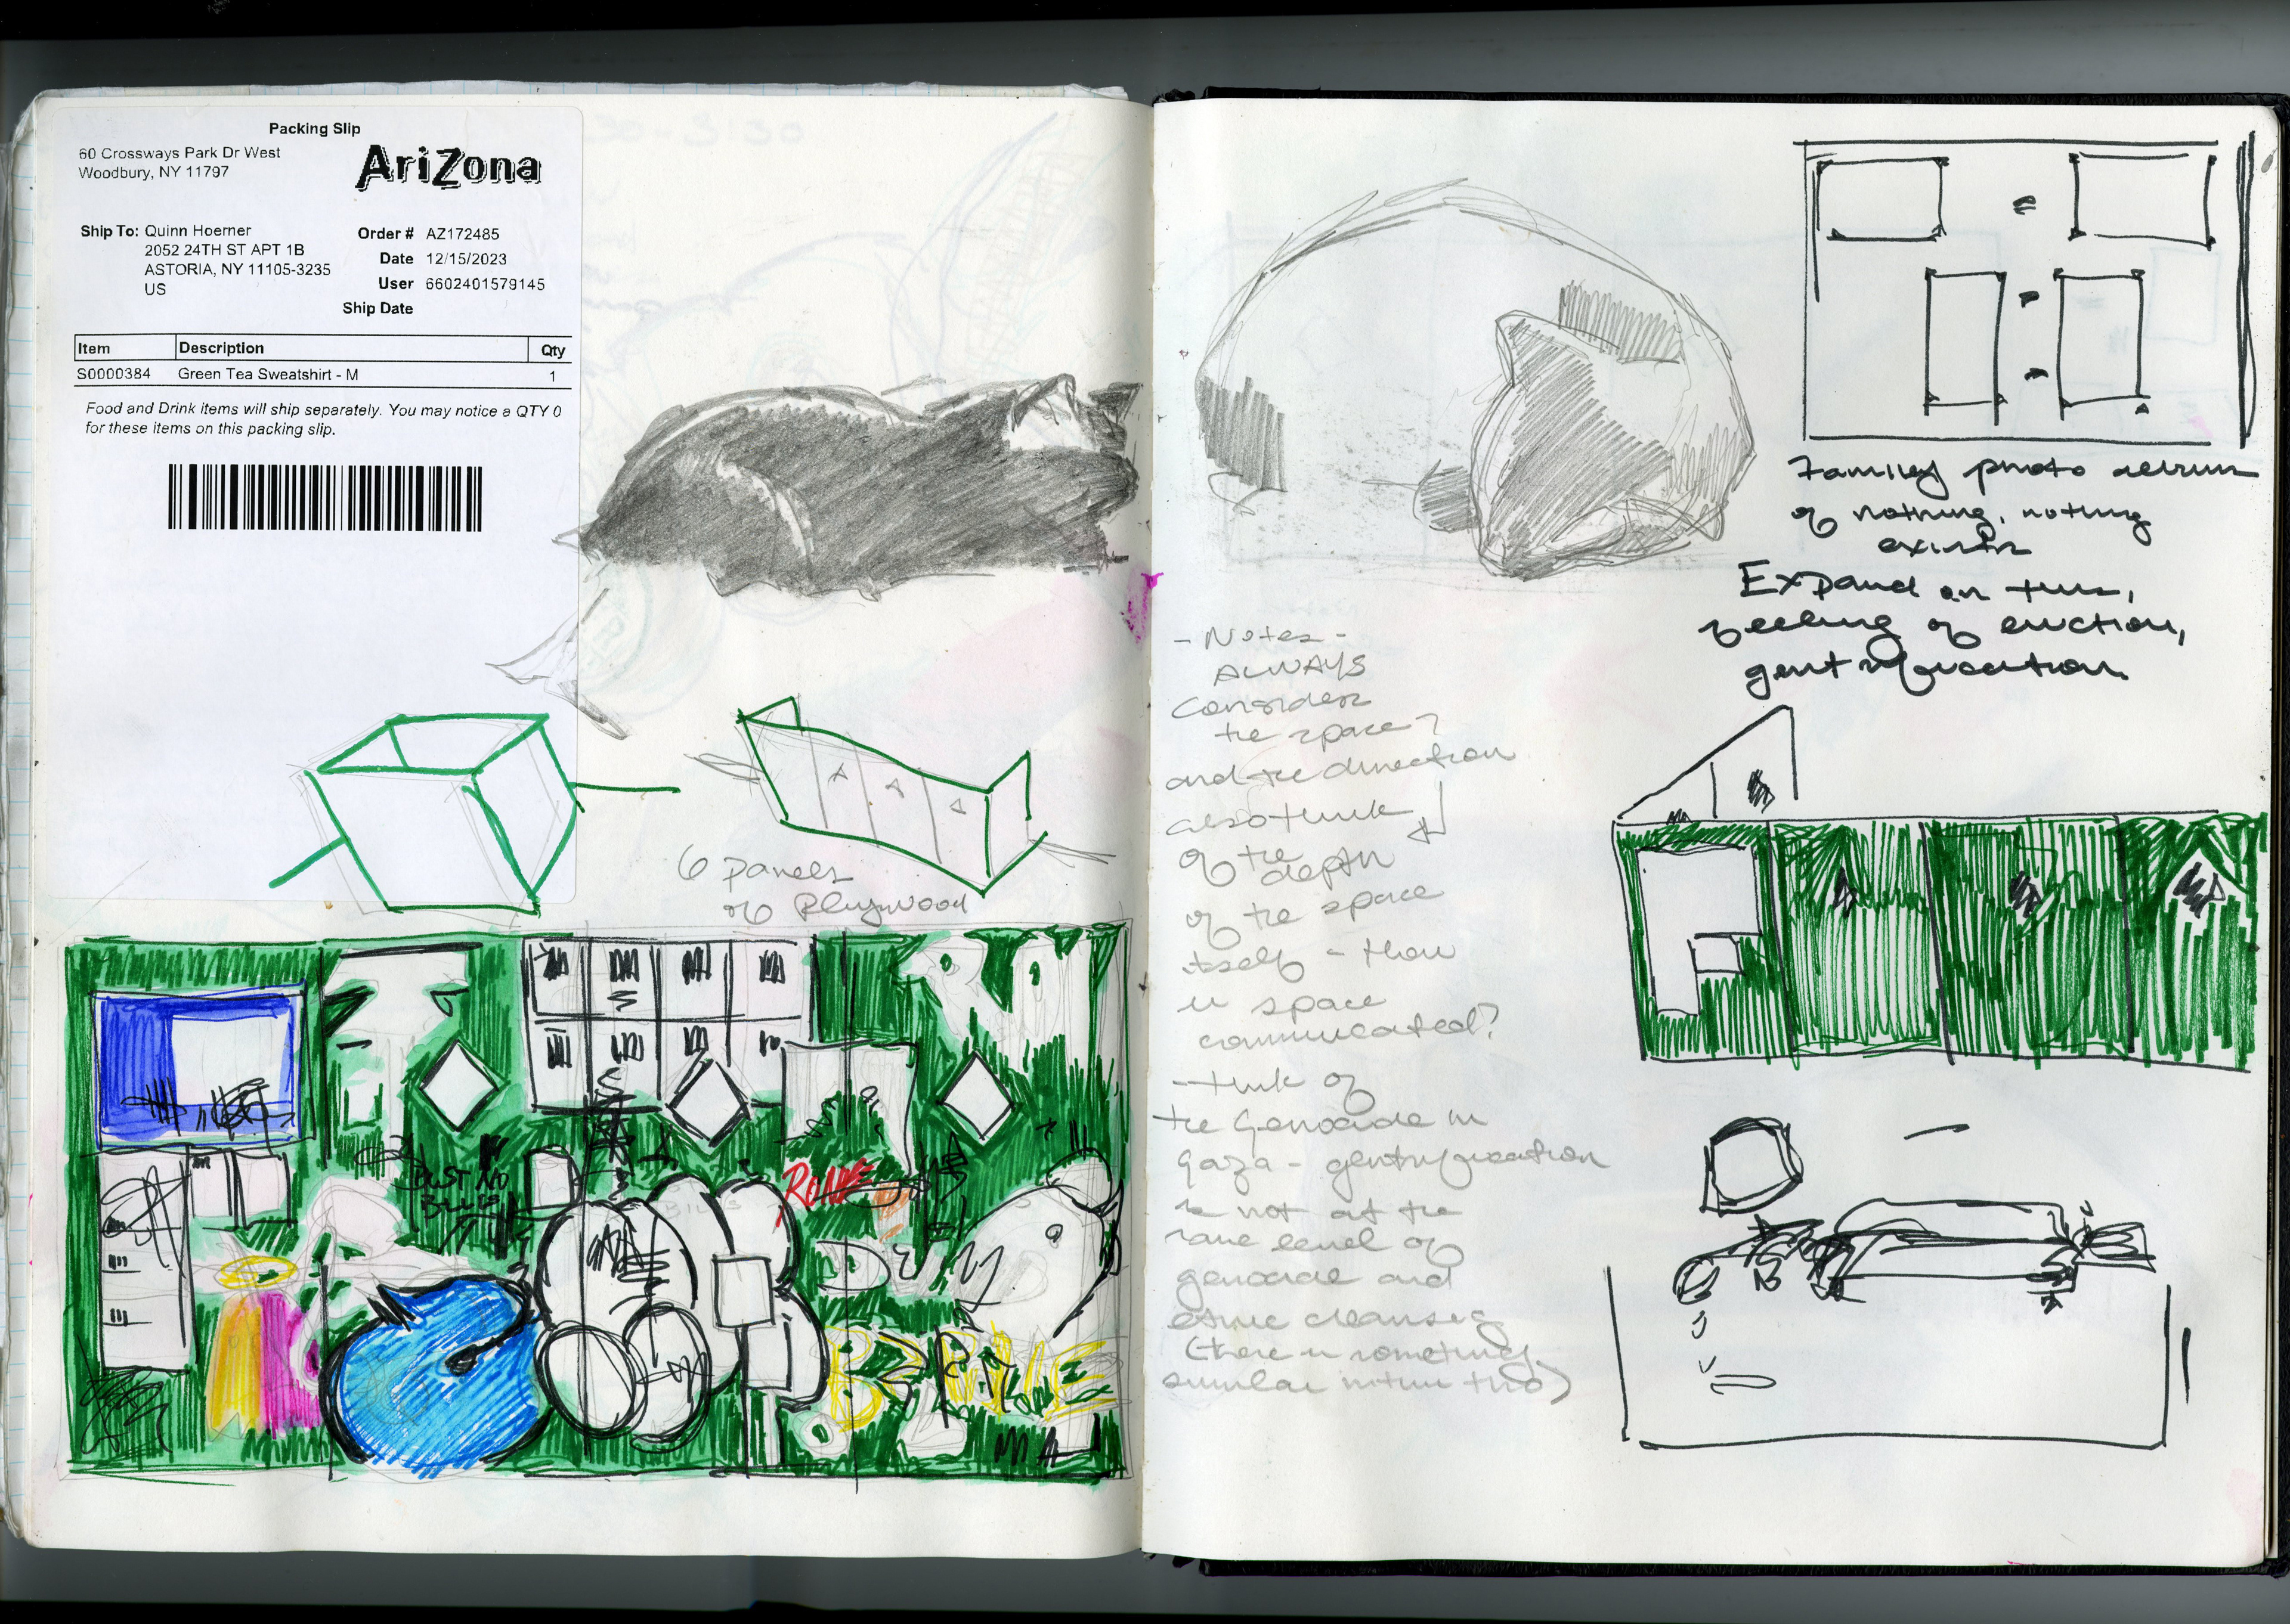 Packing Slip
60 Crossways Park Dr West
Woodbury, NY 11797
AriZona
Ship To: Quinn Hoerner
2052 24TH ST APT 1B
ASTORIA, NY 11105-3235
US
Order # AZ172485
Date 12/15/2023
User 6602401579145
Ship Date
Item Description Qty
S0000384 Green Tea Sweatshirt - M 1
Food and Drink items will ship separately. You may notice a QTY 0
for these items on this packing slip.
6 panels
of Plywood
NO
BILLS
ROAME
- Notes -
ALWAYS
Consider
the space?
and the direction
also think
of the
depth
of the space
itself - how
is space
communicated?
- think of
the Genocide in
Gaza - gentrification
is not at the
same level of
genocide and
ethnic cleansing
(there is something
similar within two)
Family photo
of nothing, nothing
exists
Expand on this,
feeling of eviction,
gentrification